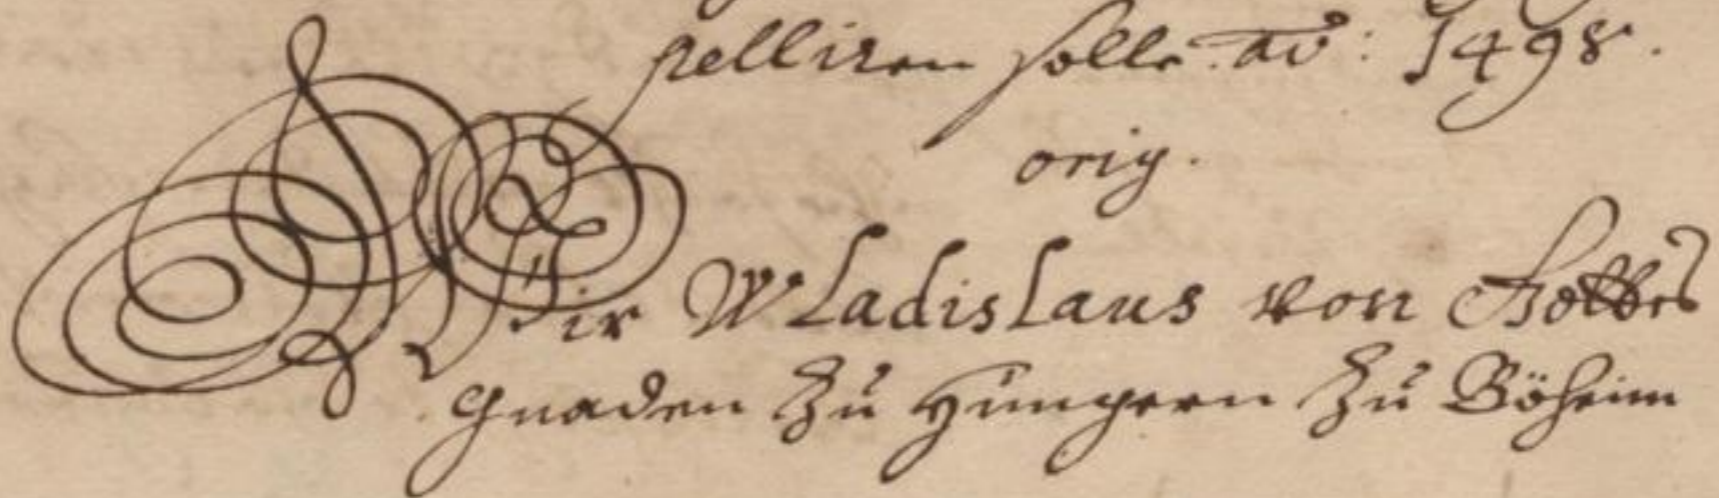 pelliren solle. aō: 1498.
orig.
Wir Wladislaus von Gottes
Gnaden Zu Hungern Zu Böheim